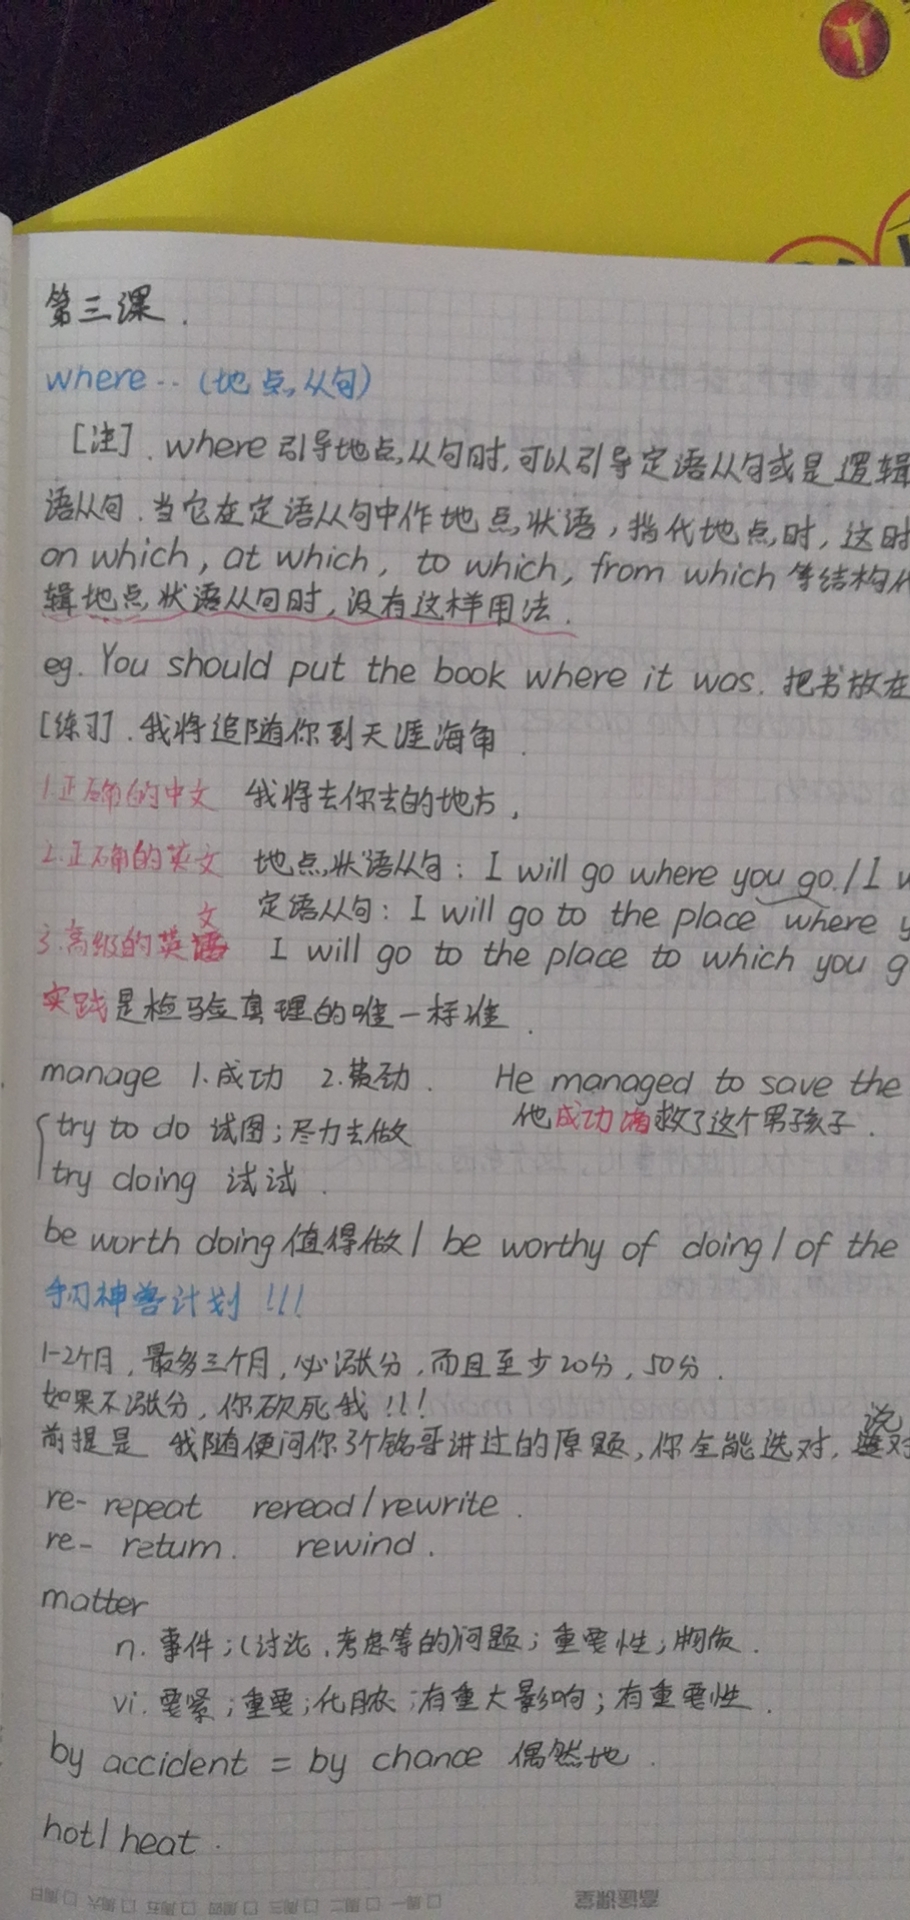 第三课.
where…(地点从句)
[注].where引导地点从句时,可以引导定语从句或是逻辑
语从句.当它在定语从句中作地点状语,指代地点时,这时
on which, at which, to which, from which等结构代
辑地点状语从句时,没有这样用法.
eg. You should put the book where it was. 把书放在
[练习].我将追随你到天涯海角.
1.正确的中文 我将去你去的地方,
2.正确的英文 地点状语从句: I will go where you go./I w
定语从句: I will go to the place where y
3.高级的英文 I will go to the place to which you g
实践是检验真理的唯一标准.
manage 1.成功 2. He managed to save the
try to do 试图;尽力去做 他成功救了这个男孩子.
try doing 试试.
be worth doing值得做/ be worthy of doing/ of the
手刃神兽计划!!!
1-2个月,最多三个月,必涨分,而且至少20分,50分.
如果不涨分,你砍死我!!!
前提是 我随便问你3个铭哥讲过的原题,你全能选对,说对
re- repeat reread/rewrite.
re- return. rewind.
matter
n.事件;(讨论,考虑等的)问题;重要性;物质.
vi.要紧;重要;化脓;有重大影响;有重要性.
by accident = by chance 偶然地.
hot/heat.
高途课堂
□周一 □周二 □周三 □周四 □周五 □周六 □周日